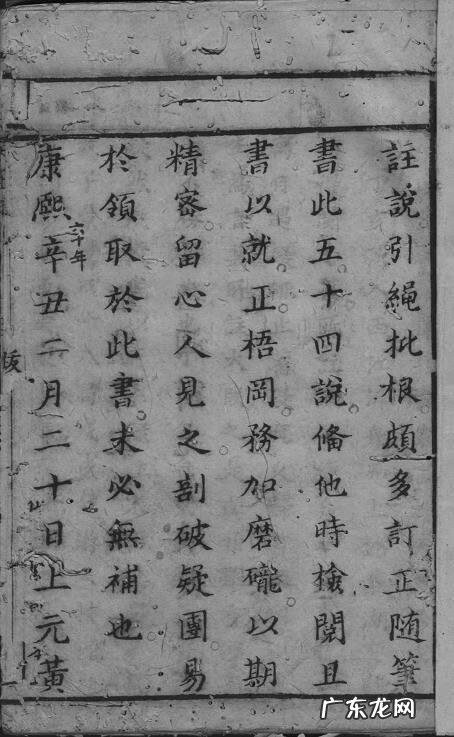 註說引繩批根頗多訂正随筆
書此五十四說俻他時撿閱且
書以就正梧岡務加磨礲以期
精密留心人見之剖破疑團易
於領取於此書未必無補也
康熙辛丑二月二十日上元黃
六十年
跋
广东龙网